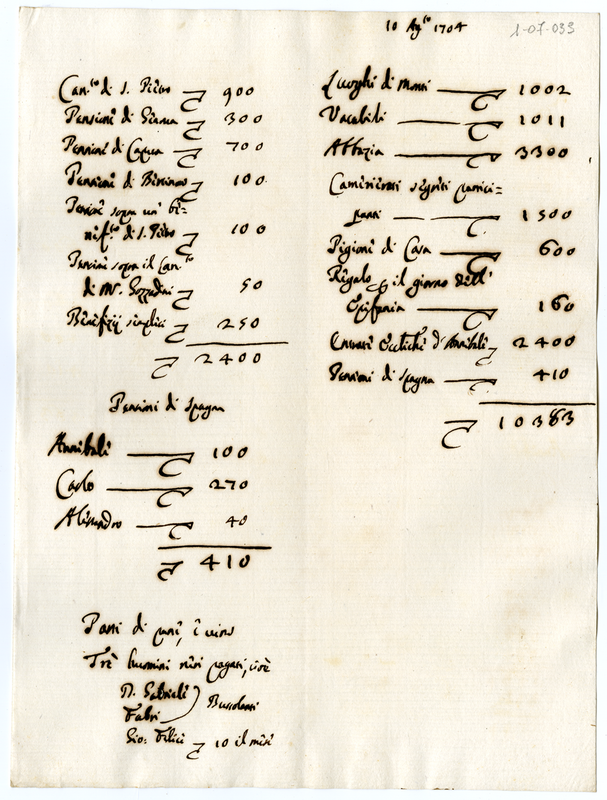 10 Ag.to 1704
1-07-033
Can.to di S. Pietro 900
Pensioni di Genova 300
Pensioni di Capua 700
Pensioni di 100
Pensioni sopra un be=
nef.to di S. Pietro 100
Pensioni sopra il Can.to
di Mr. Gozzadini 50
Benefizij semplici 250
2400
Pensioni di Spagna
Annibale 100
Carlo 270
Alessandro 40
410
Parti di pane, e vino
Trè huomini mesi pagati, cioè
N. Gabrieli
Fabri
Bussolanti
Gio: Felici 10 il mese
Luoghi di Monti 1002
Vacabili 1011
Abbazia 3300
Camerierati segreti partici=
panti 1500
Pigioni di Casa 600
Regalo il giorno dell'
Epifania 160
Entrate Ecclesiastiche d'Annibale 2400
Pensioni di Spagna 410
10383